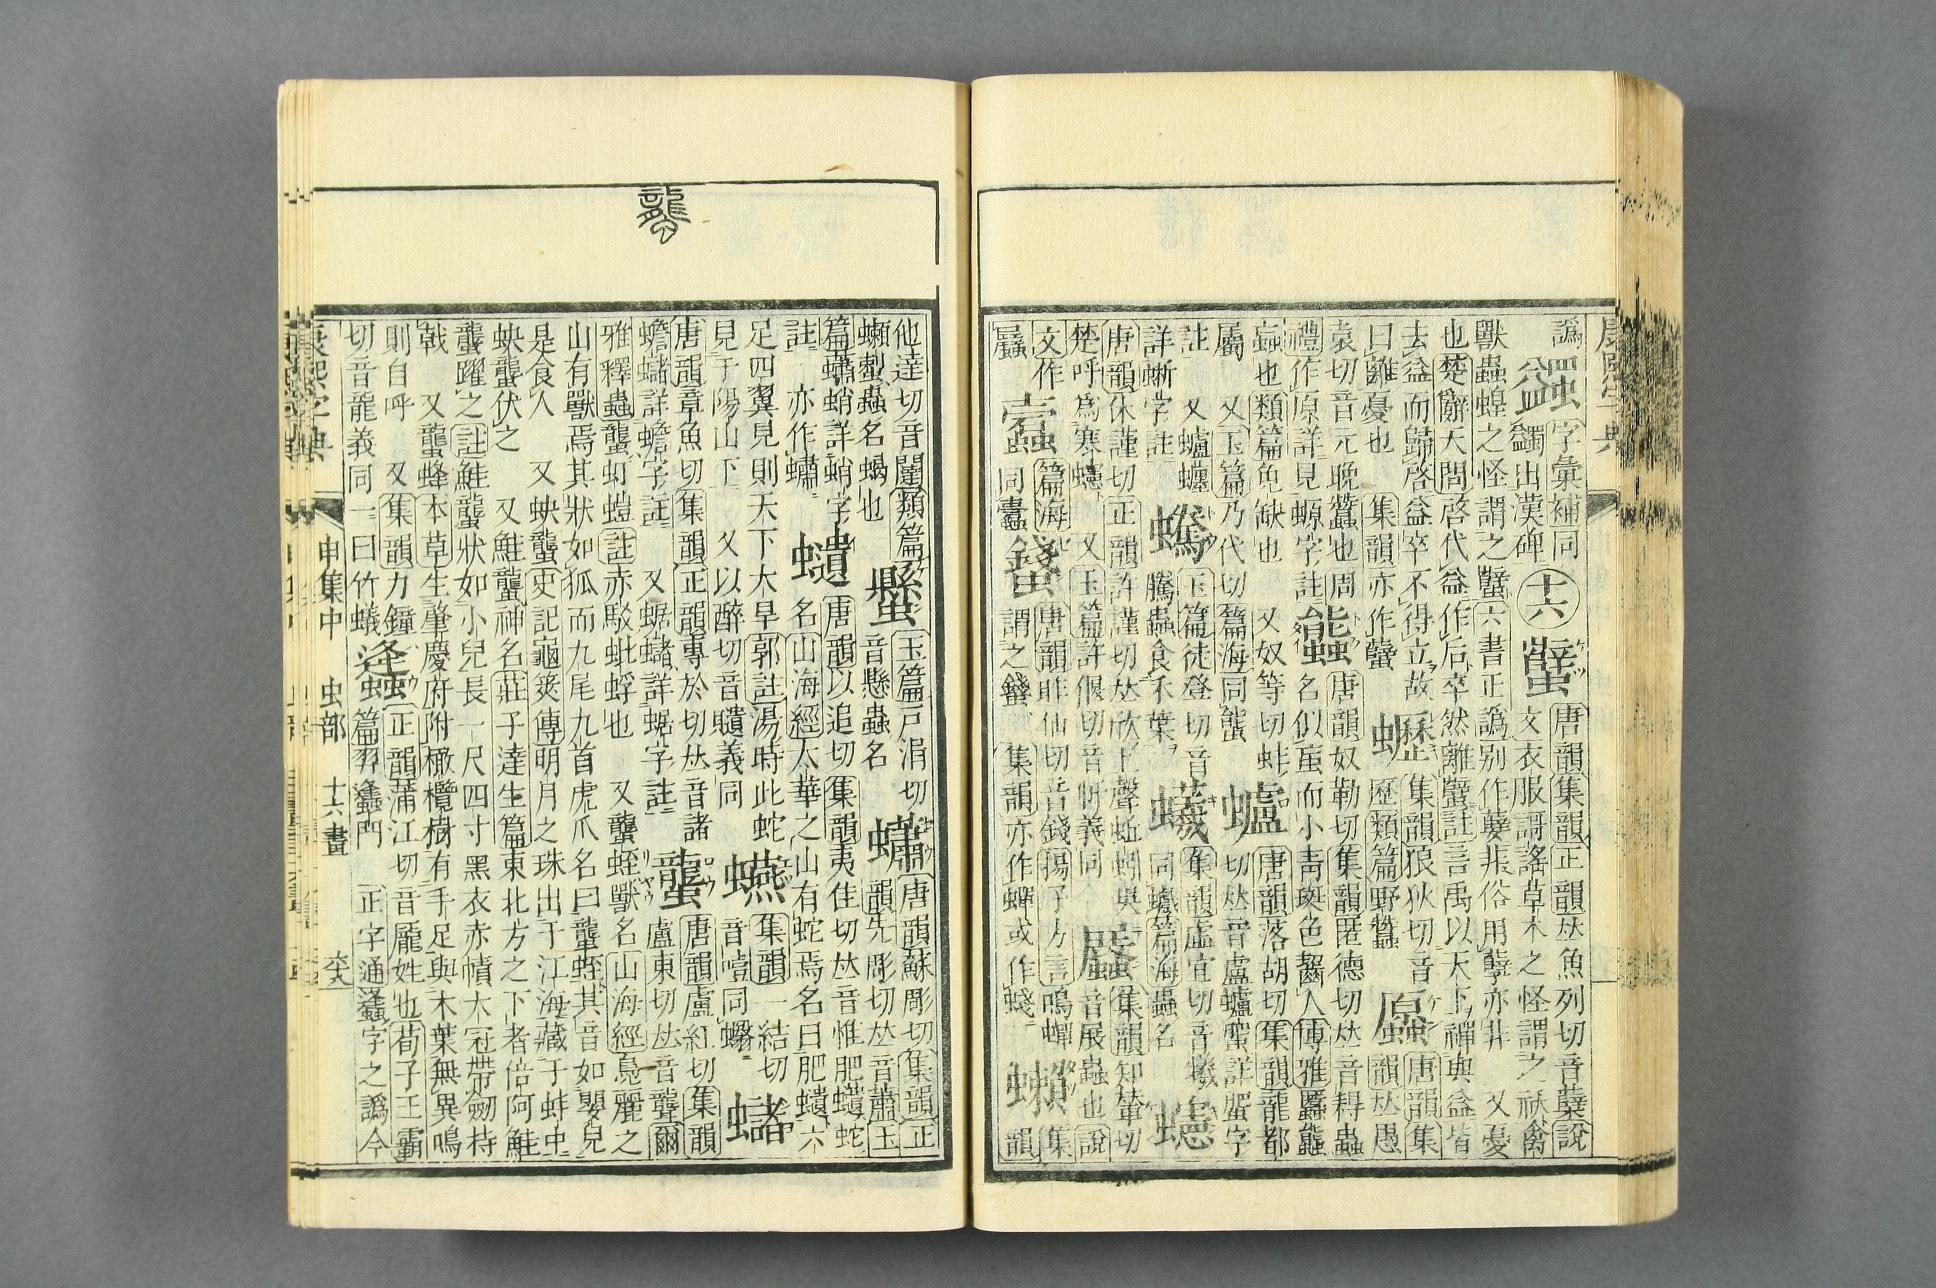 譌
字彙補同
蠲出漢碑
十六
蠥
唐韻集韻正韻𠀤魚列切音孽說
文衣服謌謠草木之怪謂之䄏禽
獸蟲蝗之怪謂之蠥六書正譌別作孽非俗用孼亦非 又憂
也楚辭天問啓代益作后卒然離蠥註言禹以天下禪與益皆
去益而歸啓益卒不得立故
曰離憂也 集韻亦作
集韻狼狄切音
歷類篇野蠶
唐韻集
韻𠀤愚
袁切音元晚蠶也周
禮作原詳見螈字註
唐韻奴勒切集韻匿德切𠀤音
蟲
名似而小靑斑色齧人博雅
也類篇缺也 又奴等切蚌
屬 又玉篇乃代切篇海同
蠦
唐韻落胡切集韻龍都
切𠀤音盧蠦詳字
註 又蠦
詳蜥字註
玉篇徒登切音
騰蟲食禾葉
集韻虛宜切音
同篇海蟲名
唐韻休謹切正韻許謹切𠀤欣上聲蚯蚓吳
楚呼爲寒 又玉篇許偃切音義同
集韻知輦切
音展蟲也說
文作
篇海
同蠹
唐韻昨仙切音錢揚子方言鳴蟬
謂之 集韻亦作蟬或作
集
韻
他達切音闥類篇
蟲名蝎也
玉篇戶涓切
音懸蟲名
蠨
唐韻蘇彫切集韻正
韻先彫切𠀤音蕭玉
篇蠨蛸詳蛸字
註 亦作蟰
唐韻以追切集韻夷佳切𠀤音惟肥蛇
名山海經太華之山有蛇焉名曰肥六
足四翼見則天下大旱郭註湯時此蛇
見于陽山下 又以醉切音義同
集韻一結切
音噎同蠮
蠩
唐韻章魚切集韻正韻專於切𠀤音諸
蟾蠩詳蟾字註 又蜛蠩詳蜛字註
蠪
唐韻盧紅切集韻
盧東切𠀤音聾爾
雅釋蟲蠪虰螘註赤駁蚍蜉也 又蠪蛭獸名山海經鳧麗之
山有獸焉其狀如狐而九尾九首虎爪名曰蠪蛭其音如嬰兒
是食人 又蚗蠪史記龜筴傳明月之珠出于江海藏于蚌中
蚗蠪伏之 又鮭蠪神名莊子達生篇東北方之下者倍阿鮭
蠪躍之註鮭蠪狀如小兒長一尺四寸黑衣赤幘大冠帶劒持
戟 又蠪蜂本草生肇慶府附橄欖樹有手足與木葉無異鳴
則自呼 又集韻力鐘
切音龍義同一曰竹蟻
正韻蒲江切音龎姓也荀子王霸
篇羿門 正字通字之譌今
康熙字典 申集中 虫部 十六畫